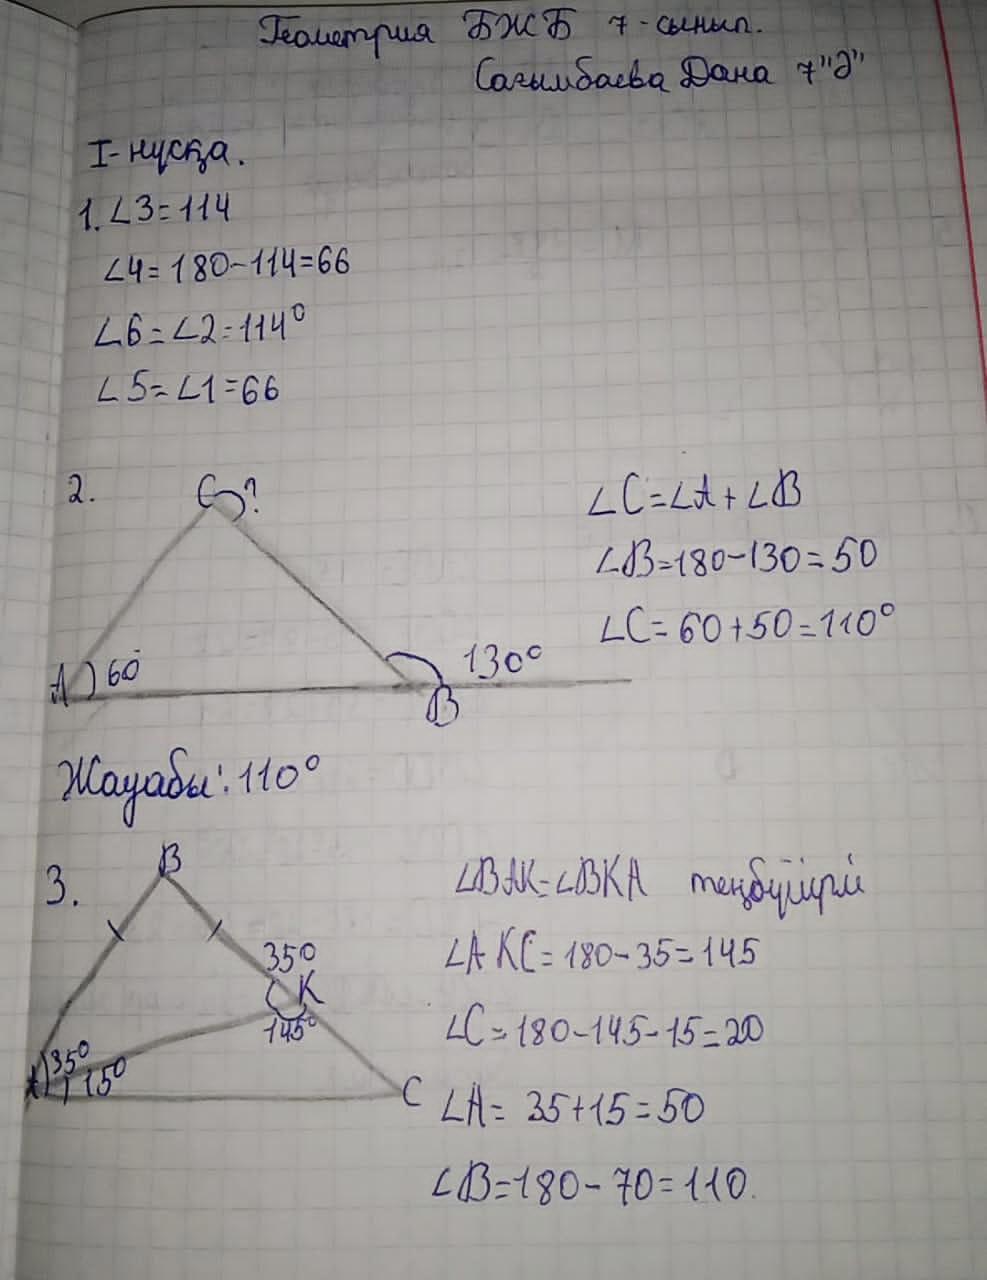 Геометрия БЖБ 7-сынып.
Сағымбаева Дана 7"Ә"
I-нұсқа.
1. ∠3=114
∠4=180-114=66
∠6=∠2=114°
∠5=∠1=66
2.
C ?
A 60°
130°
B
∠C=∠A+∠B
∠B=180-130=50
∠C=60+50=110°
Жауабы: 110°
3.
B
35°
K
145°
A 35°
15°
C
∠BAK=∠BKA теңбүйірлі
∠AKC=180-35=145
∠C=180-145-15=20
∠A=35+15=50
∠B=180-70=110.